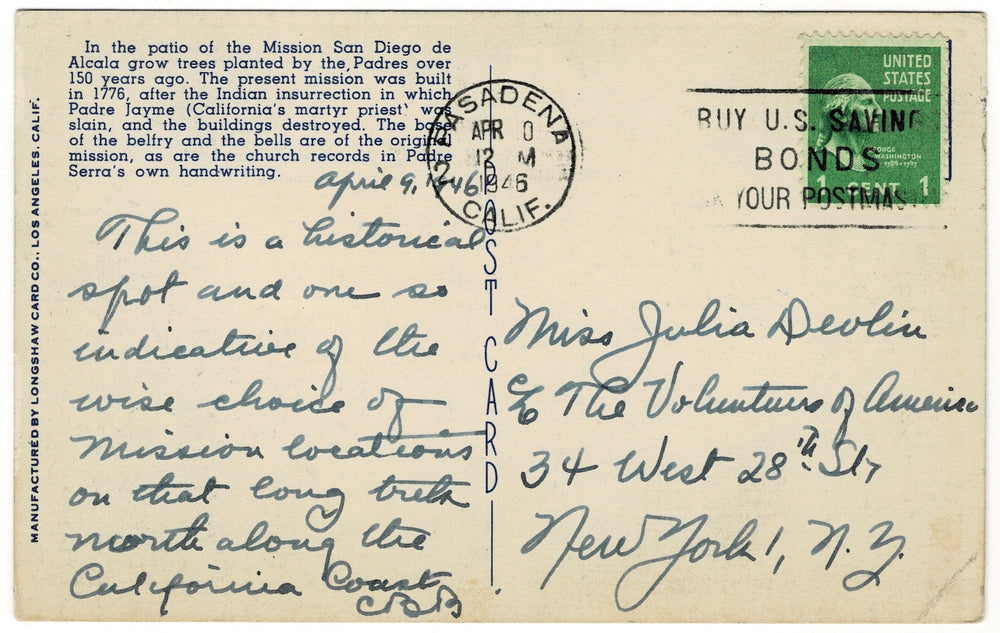 In the patio of the Mission San Diego de
Alcala grow trees planted by the Padres over
150 years ago. The present mission was built
in 1776, after the Indian insurrection in which
Padre Jayme (California's martyr priest) was
slain, and the buildings destroyed. The base
of the belfry and the bells are of the original
mission, as are the church records in Padre
Serra's own handwriting.
MANUFACTURED BY LONGSHAW CARD CO., LOS ANGELES, CALIF.
April 9, 1946
This is a historical
spot and one so
indicative of the
wise choice of
Mission locations
on that long
north along the
California Coast
CBB
POST CARD
PASADENA
2
APR
12 M
1946
CALIF.
BUY U.S. SAVING
BONDS
YOUR POSTMAS
UNITED
STATES
POSTAGE
GEORGE
WASHINGTON
1789-1797
1 CENT 1
Miss Julia Devlin
The Volunteers of America
34 West 28th St,
New York 1, N.Y.